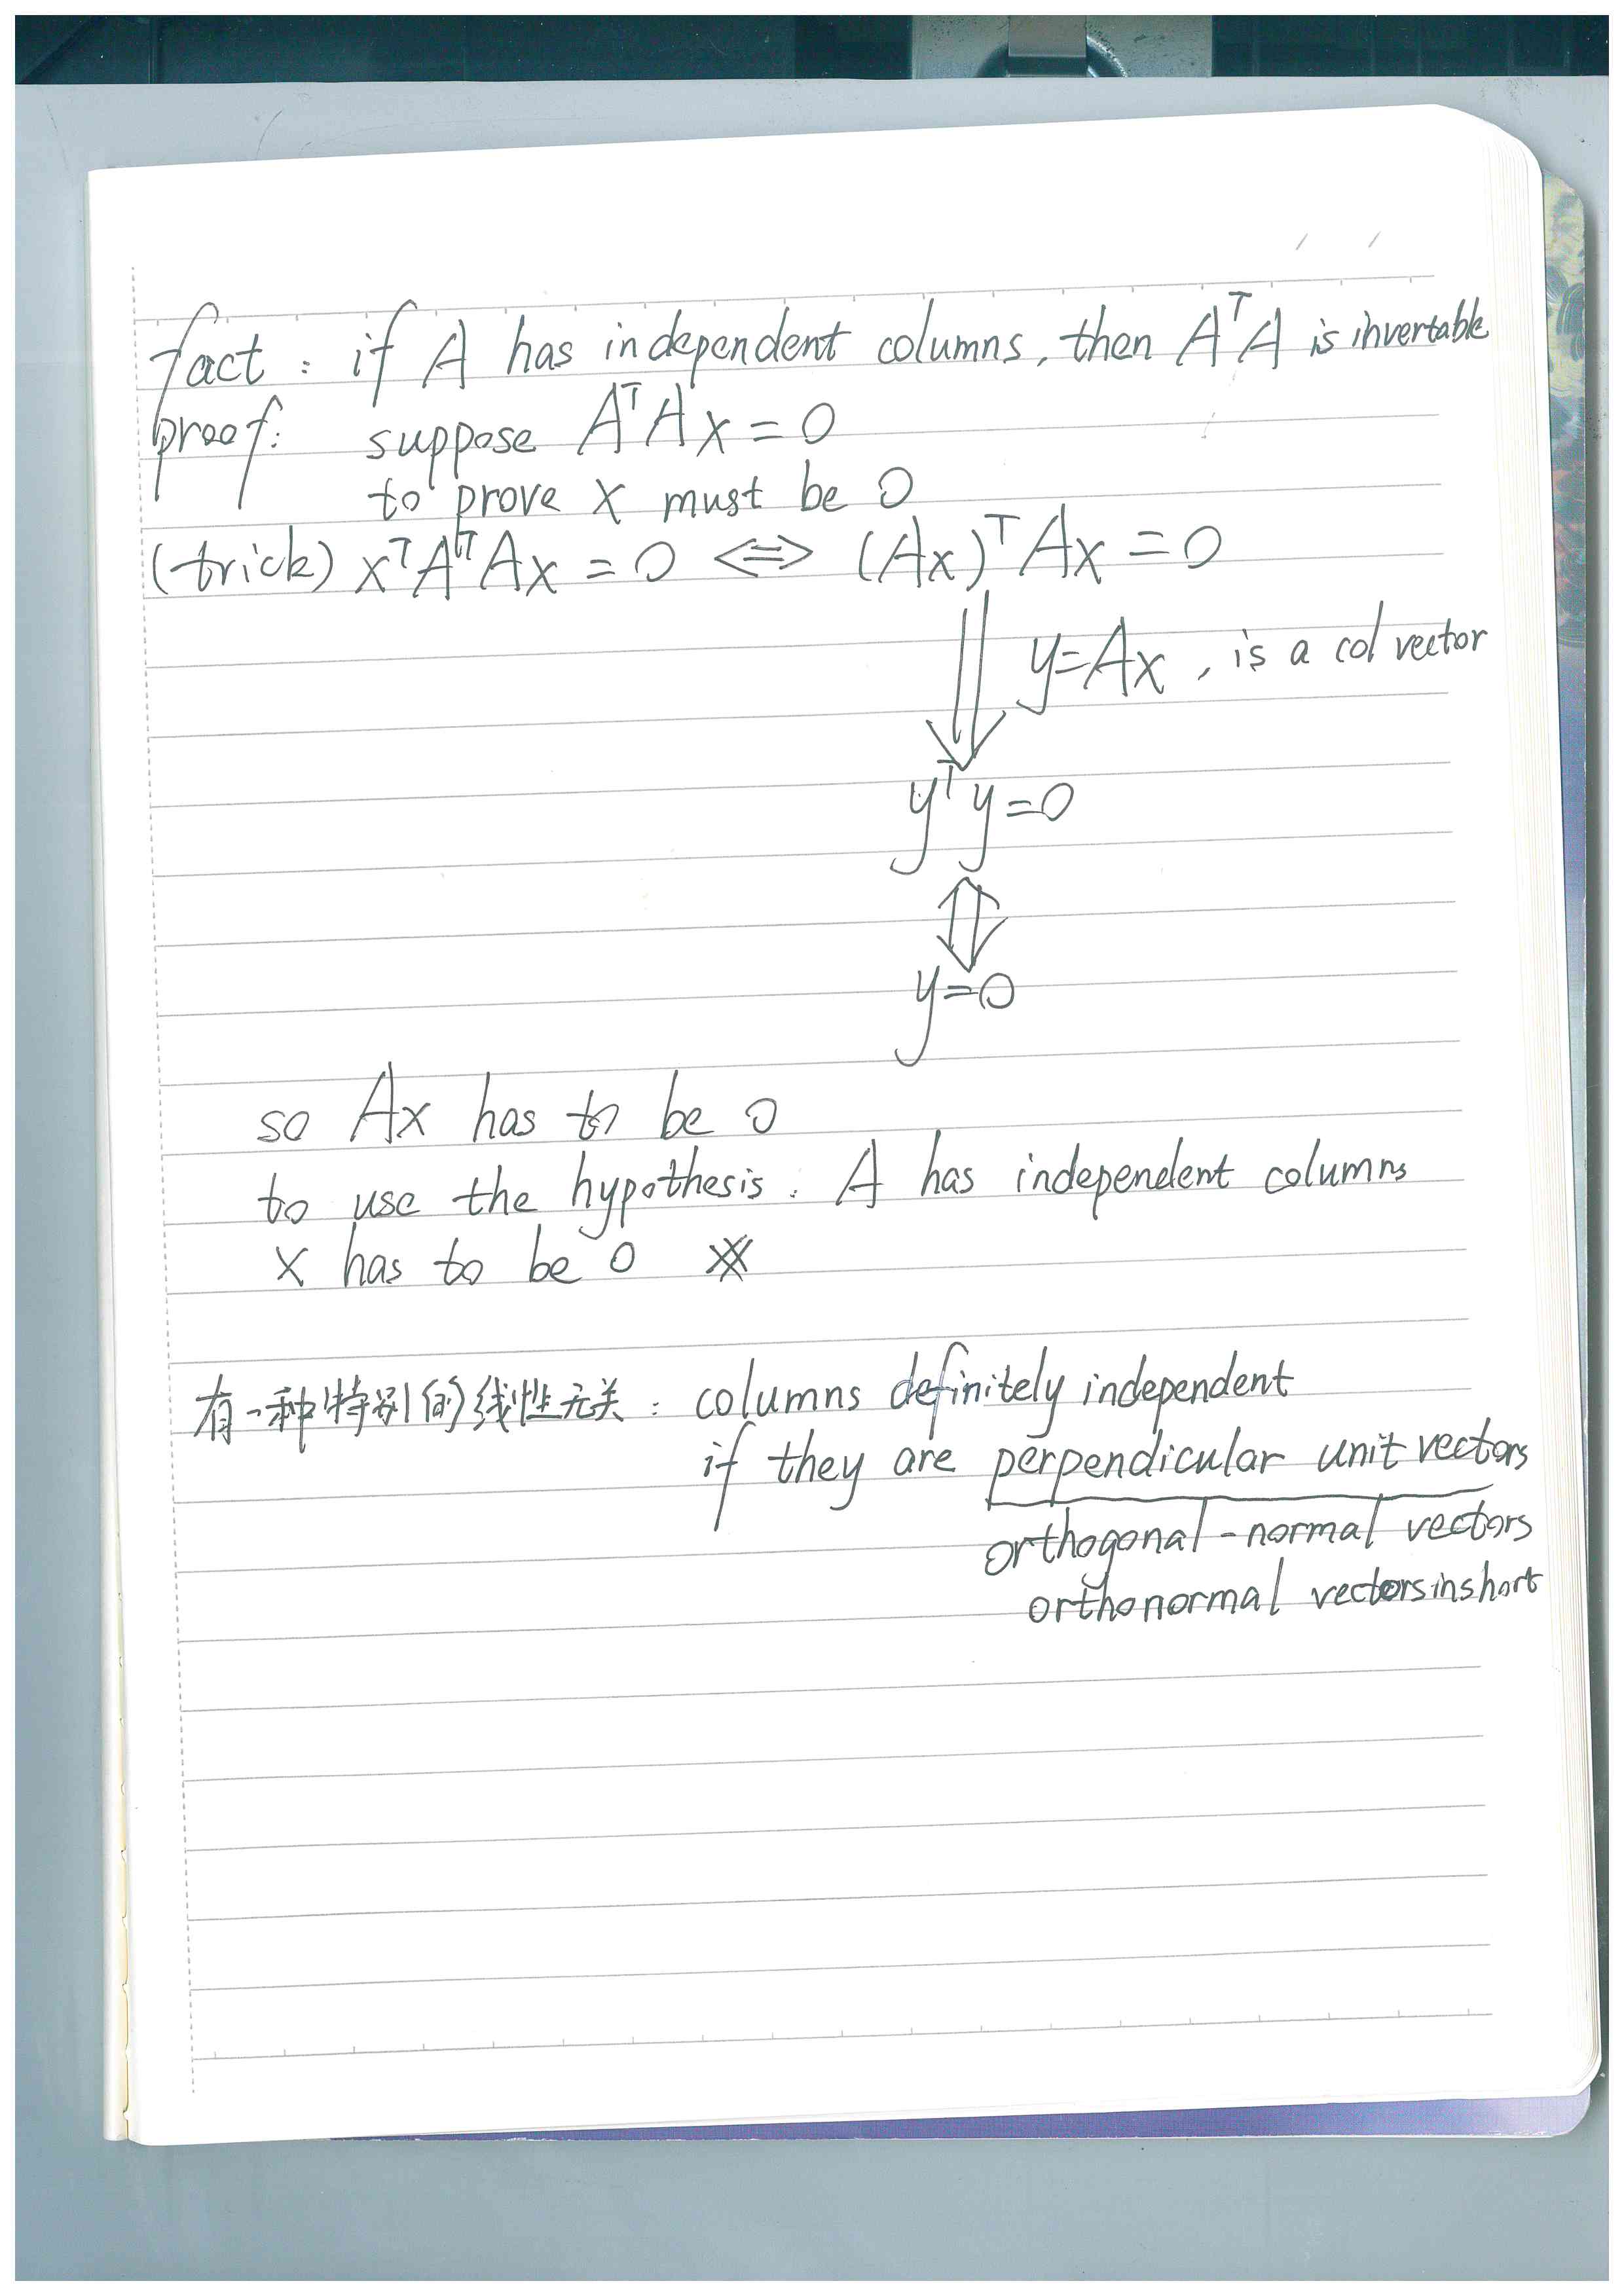 fact : if A has independent columns, then AᵀA is invertable
proof: suppose AᵀAx = 0
to prove x must be 0
(trick) xᵀAᵀAx = 0 ⇔ (Ax)ᵀAx = 0
⇓ y=Ax, is a col vector
yᵀy=0
⇕
y=0
so Ax has to be 0
to use the hypothesis: A has independent columns
x has to be 0 ※
有一种特别的线性无关: columns definitely independent
if they are perpendicular unit vectors
orthogonal-normal vectors
orthonormal vectors in short